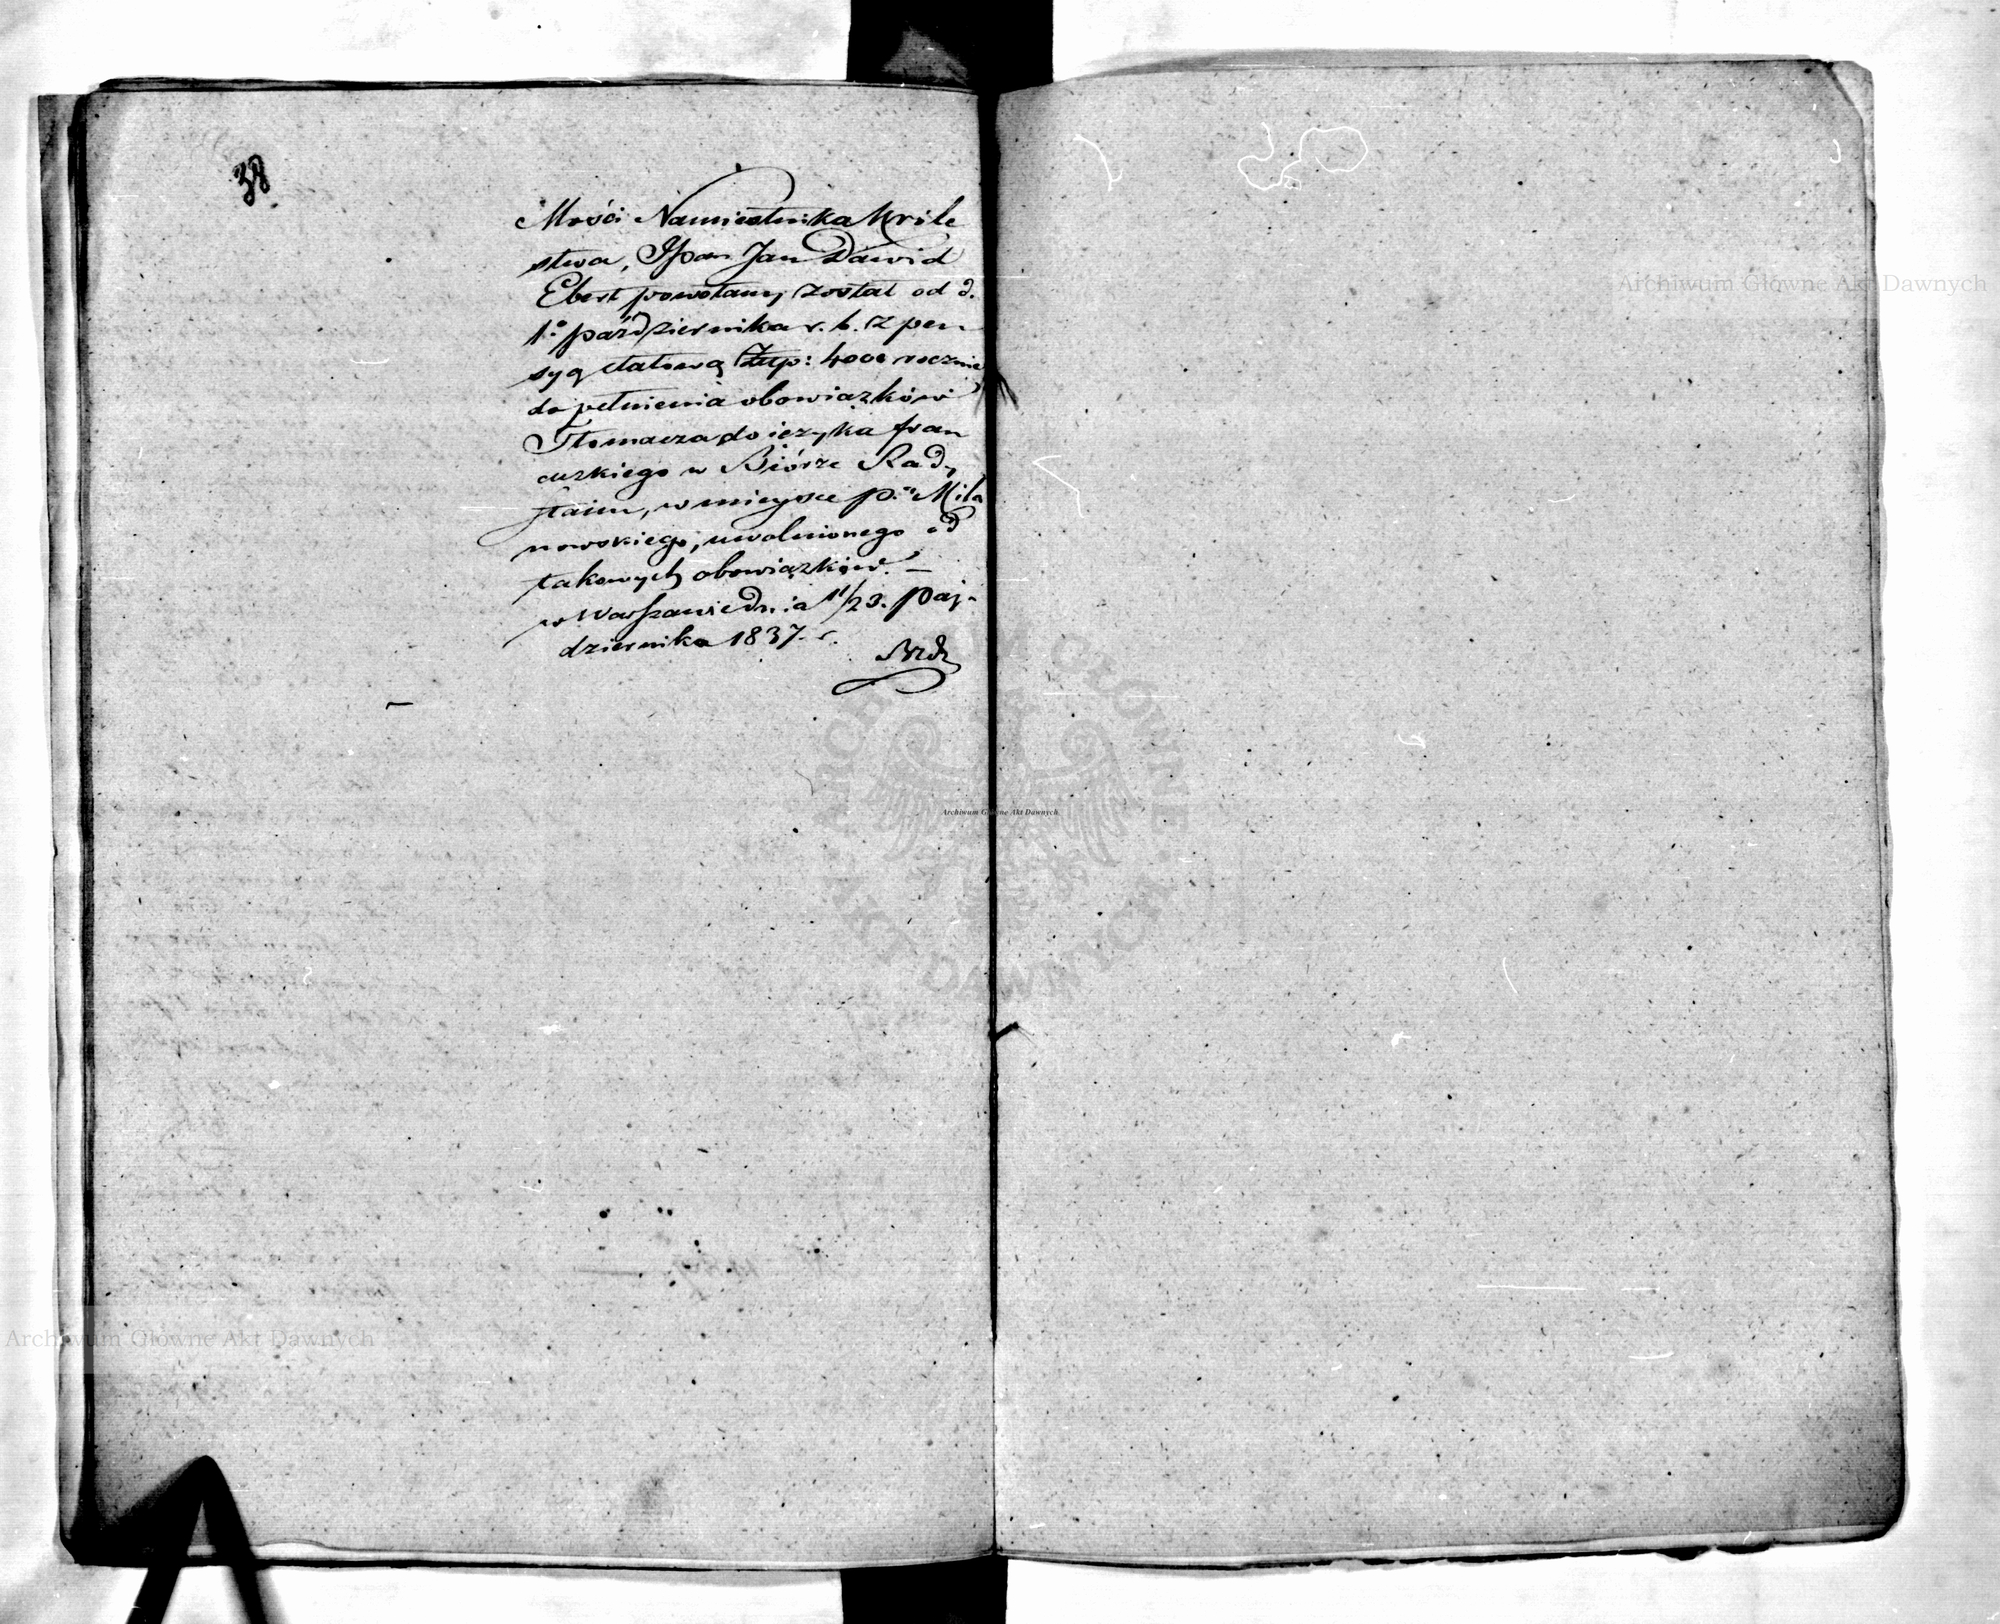 38
Mości Namiestnika Króle
stwa, JPan Jan Dawid
Ebert powołany został od d.
1º października r. b. z pen
syą etatową Złtp: 4000 rocznie
do pełnienia obowiązków
Tłomacza do ięzyka fran
cuzkiego w Biórze Rady
Stanu, w mieysce p. Mila
nowskiego, uwolnionego od
takowych obowiązków. —
w Warszawie dnia 11/23. Paź-
dziernika 1837. r.
Archiwum Główne Akt Dawnych
ARCHIWUM GŁÓWNE · AKT DAWNYCH ·
Archiwum Główne Akt Dawnych
Archiwum Główne Akt Dawnych